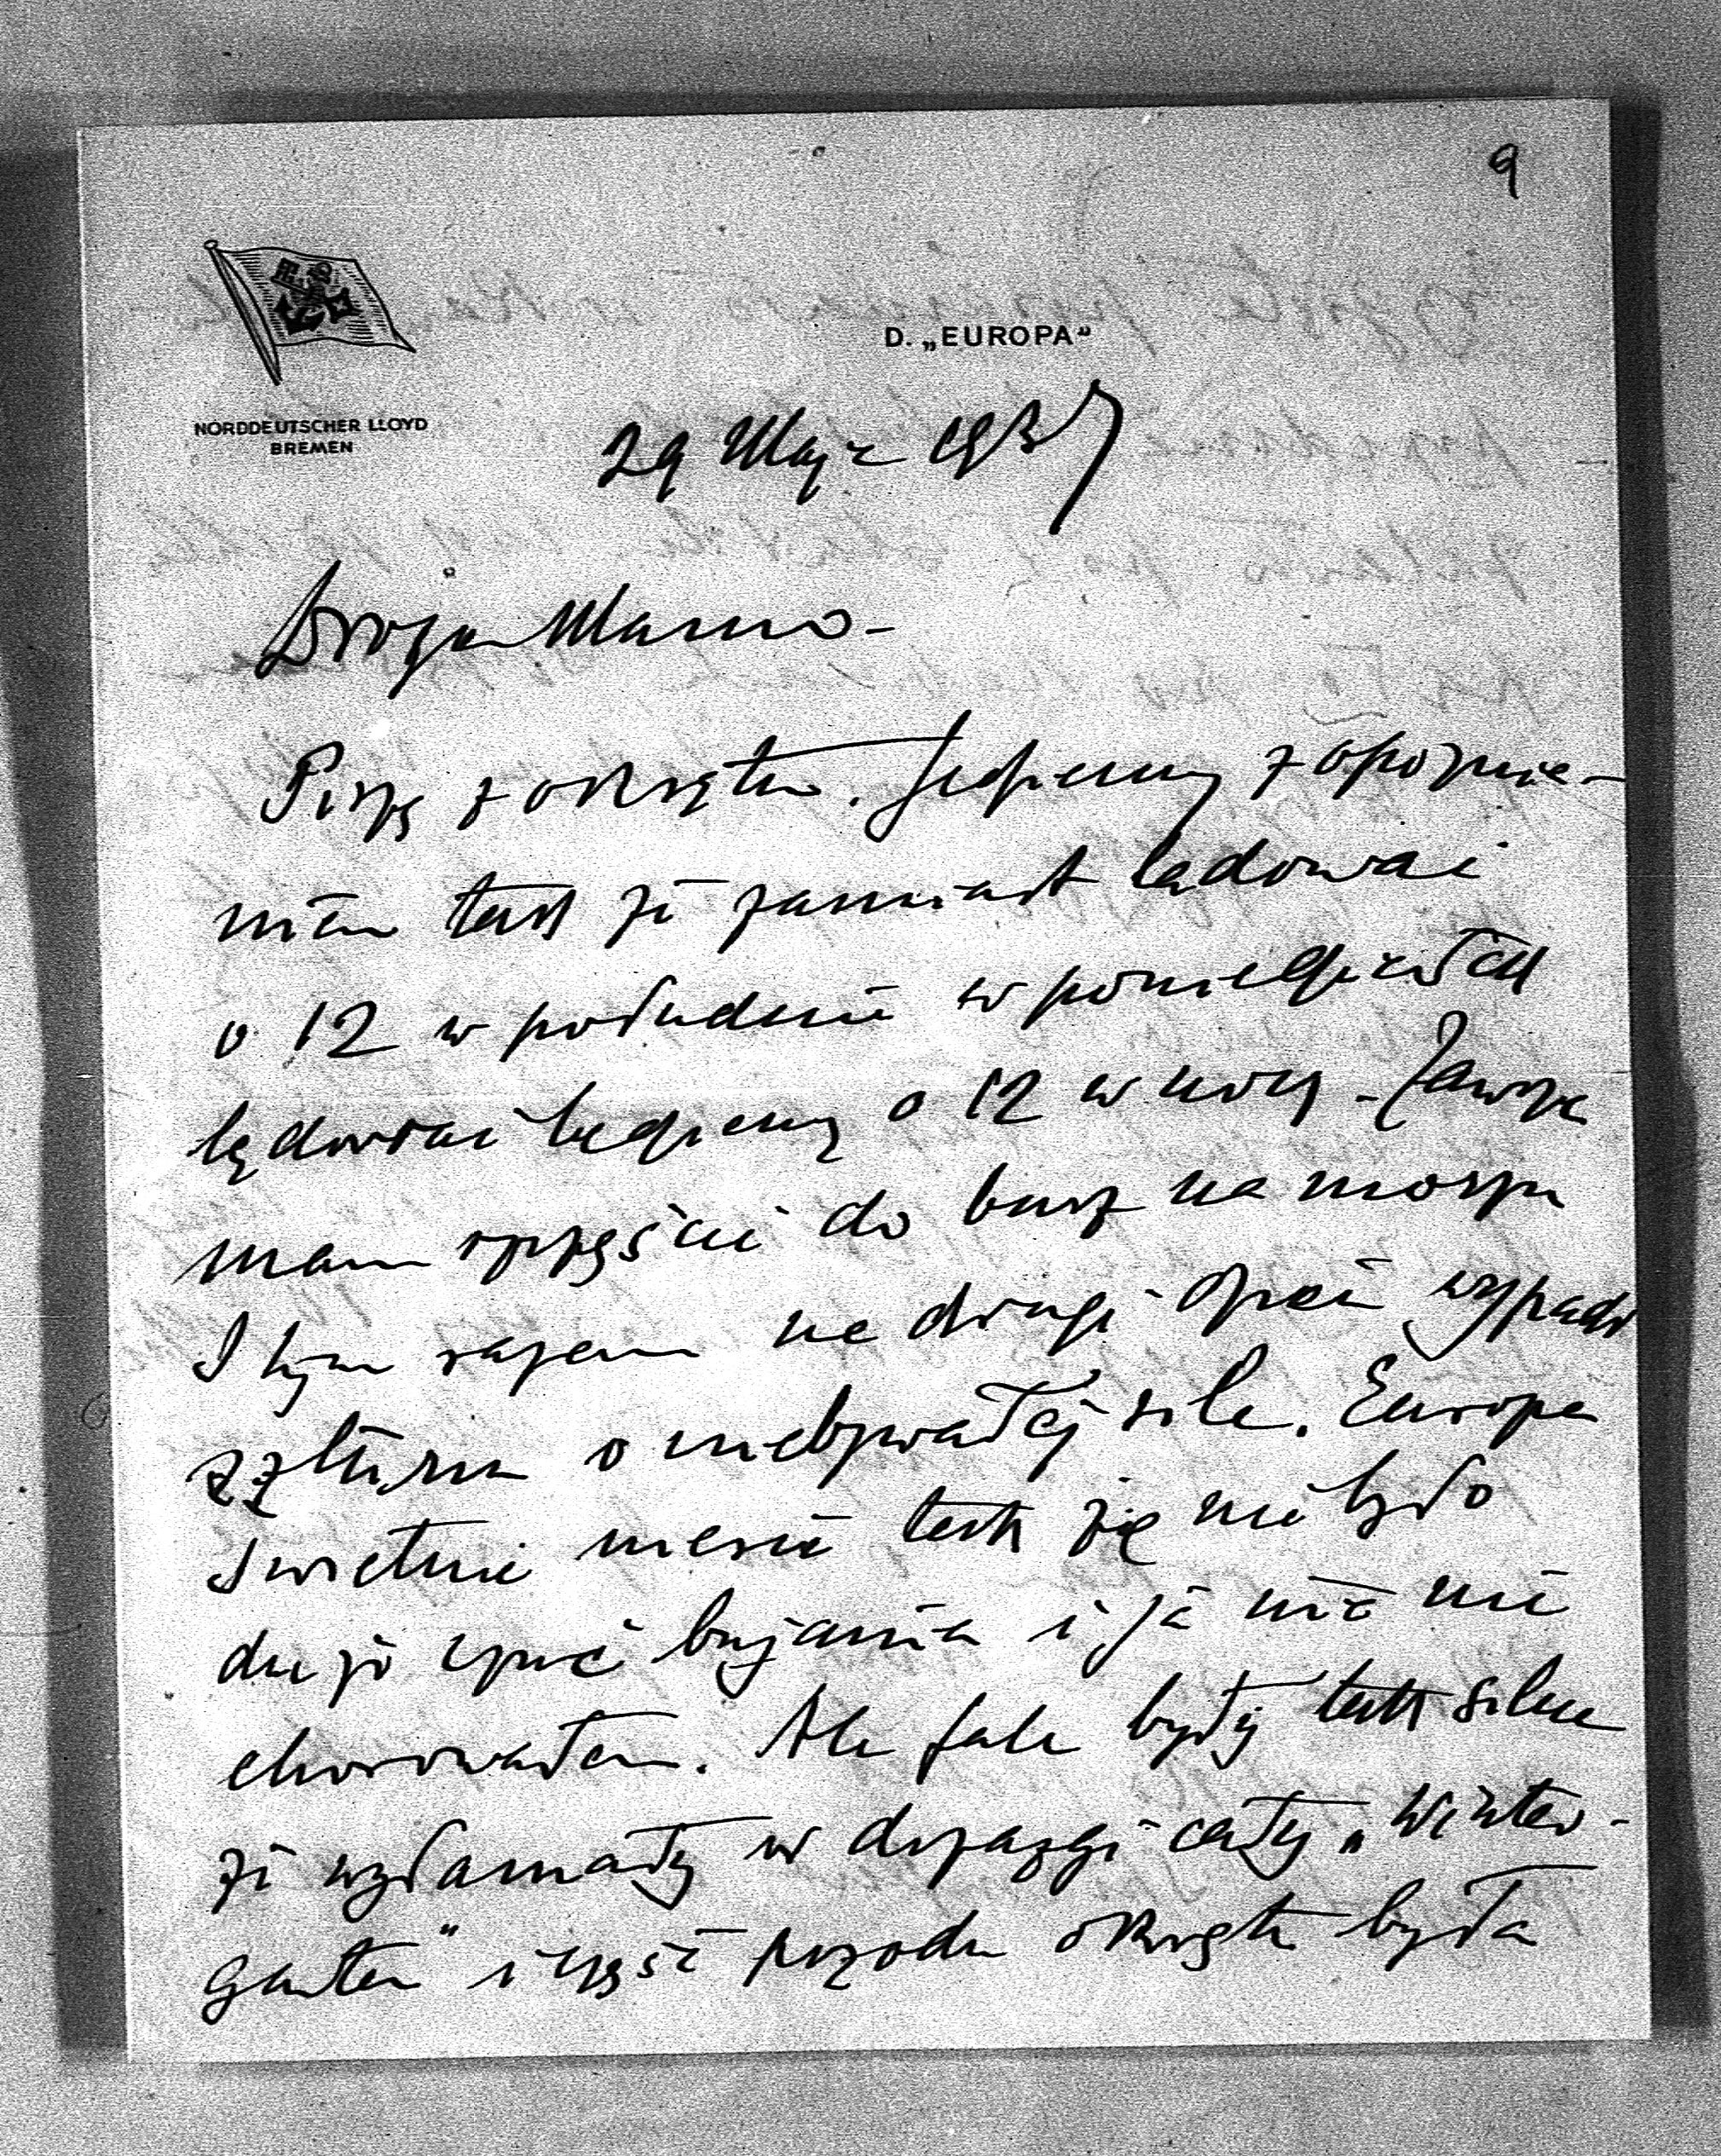 9
D. „EUROPA"
NORDDEUTSCHER LLOYD
BREMEN
29 Maja 1937
Droga Mamo -
Piszę z okrętu. Jedziemy z opoznie-
niem tak że zamiast lądować
o 12 w południe w poniedziałek
lądować będziemy o 12 w nocy - Zawsze
mam szczęście do burz na morzu
I tym razem na drugi dzień wypadł
sztorm o niebywałej sile. Europa
swietnie niesie tak że nie było
dużo czuć bujania i ja nic nie
chorowałem. Ale fale były tak silne
że wyłamały w drzazgi cały „Winter-
garten" i część przodu okrętu była